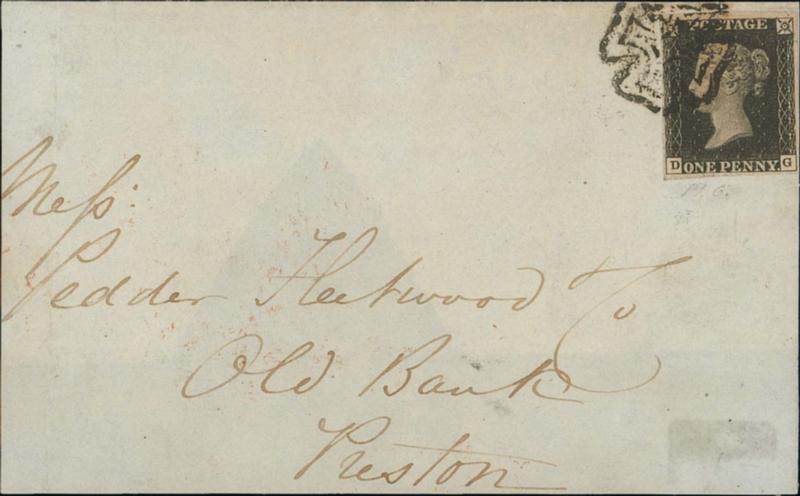 POSTAGE
D ONE PENNY G
Pl. 6.
Mess:
Pedder Fleetwood Co
Old Bank
Preston